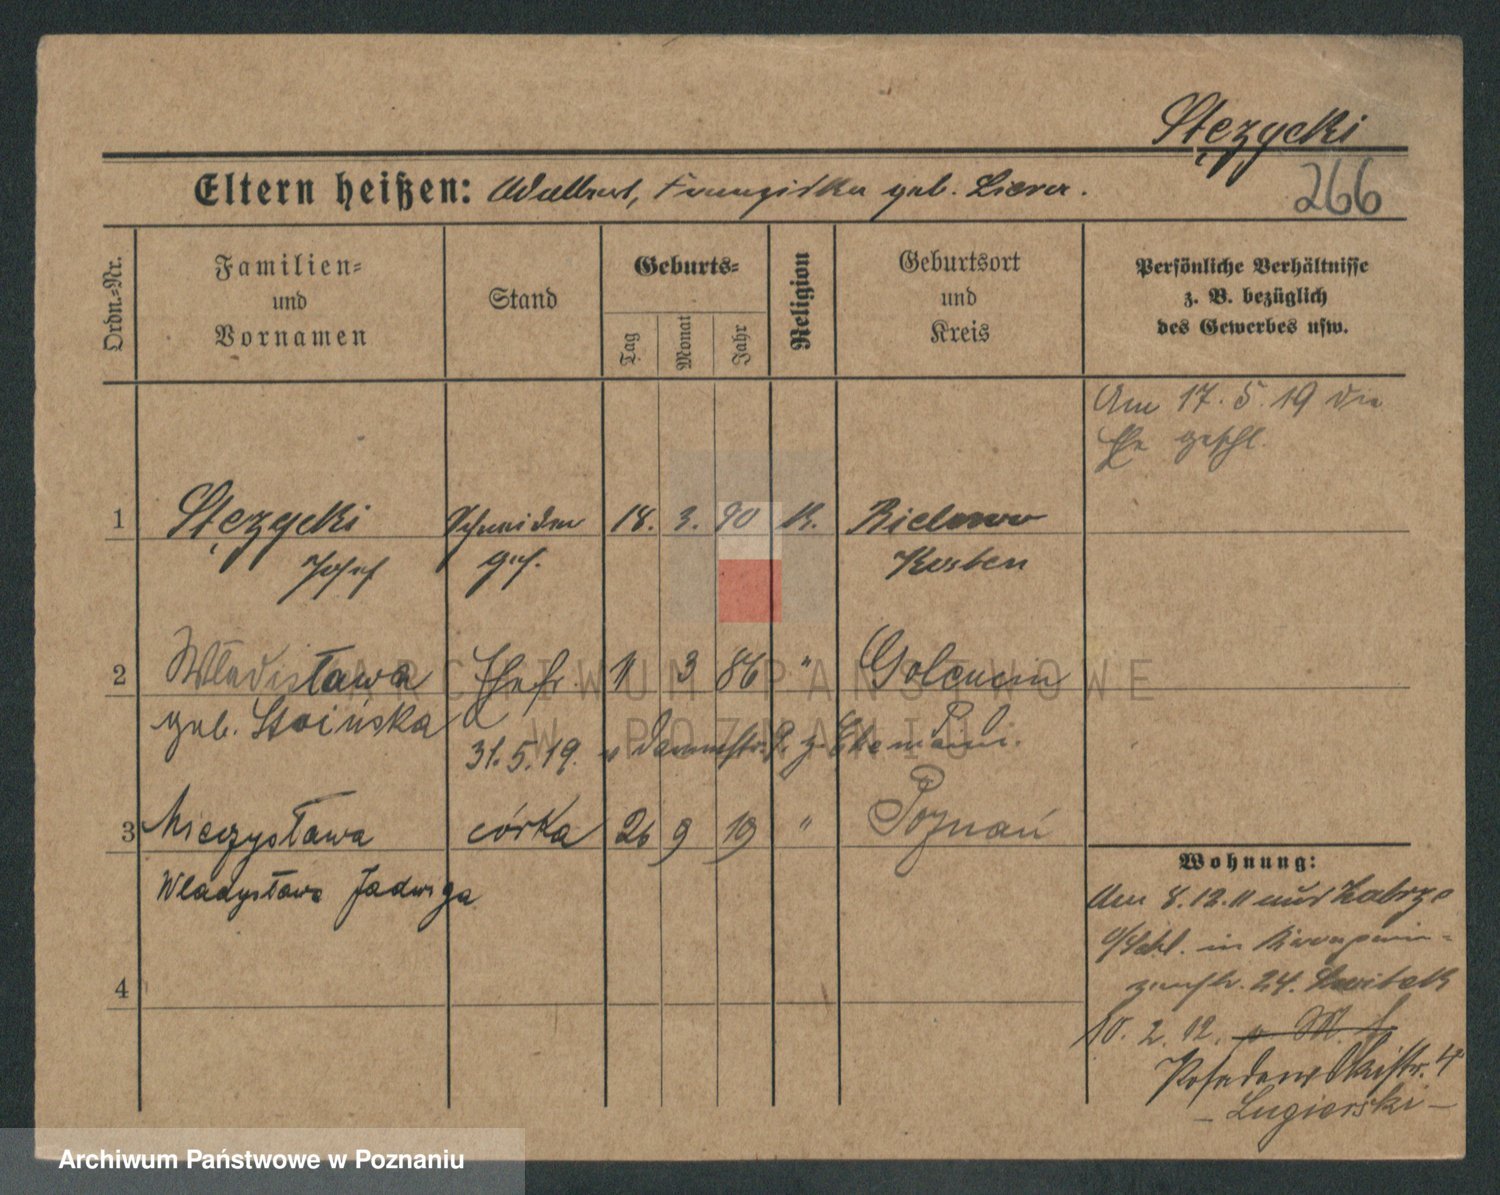 Stęzycki
266
Eltern heißen: Adalbert, Franziska geb. Liera.
Ordn.=Nr.
Familien=
und
Vornamen
Stand
Geburts=
Tag
Monat
Jahr
Religion
Geburtsort
und
Kreis
Persönliche Verhältnisse
z. B. bezüglich
des Gewerbes usw.
Am 17. 5. 19 die
Ehe geschl.
1 Stęzycki Schneider 18. 3. 90 K. Bielewo
Josef ges. Kosten
2 Władisława Ehefr. 11 3 86 " Golencin
geb. Stoińska
31. 5. 19. z. Ehemann.
3 Mieczysława córka 26 9 19 " Poznań
Władysława Jadwiga
4
Wohnung:
Am 8. 12. 11 aus Zabrze
in
24.
10. 2. 12.
4
- Lugierski -
ARCHIWUM PAŃSTWOWE
W POZNANIU
Archiwum Państwowe w Poznaniu